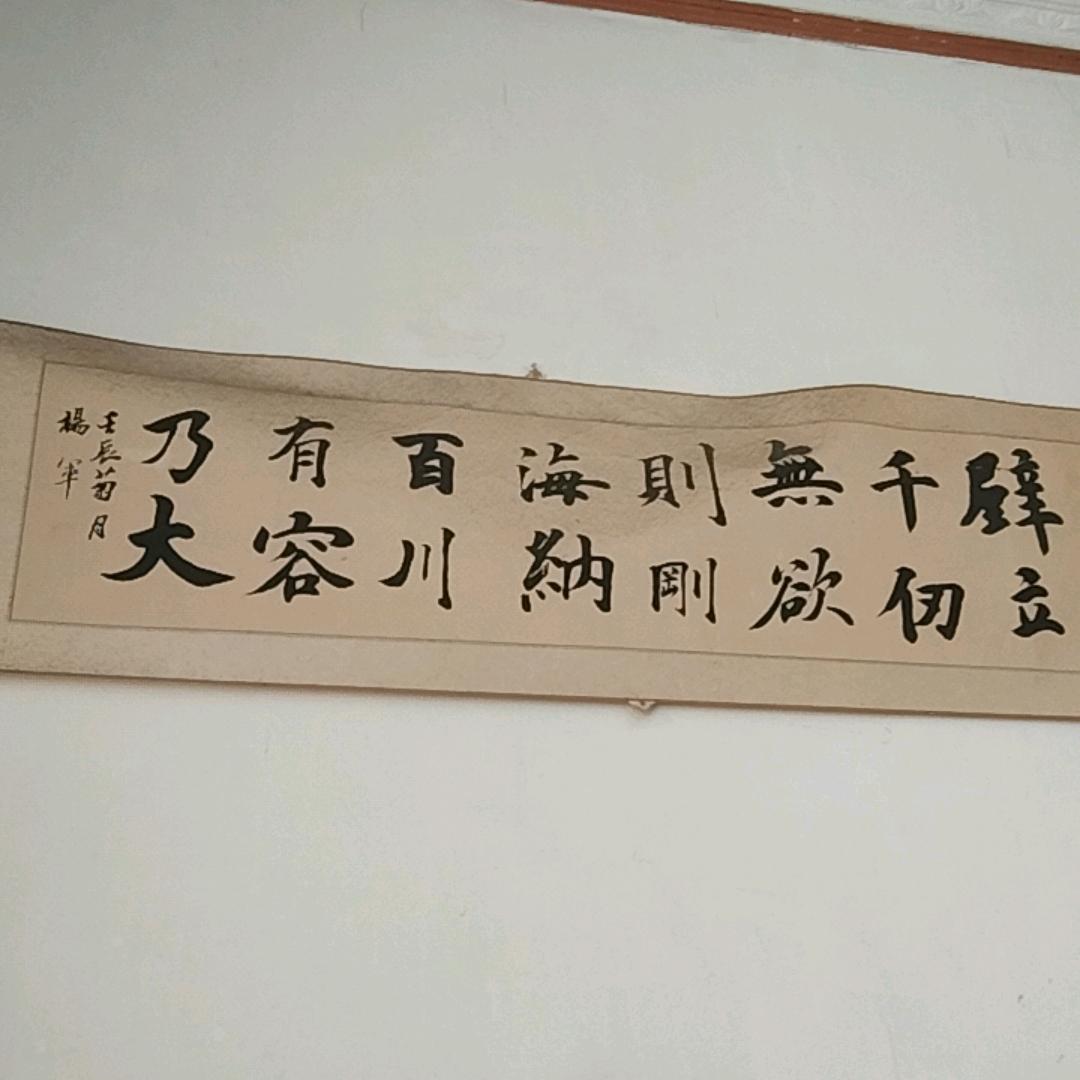 壁立
千仞
無欲
則剛
海納
百川
有容
乃大
壬辰菊月
楊軍